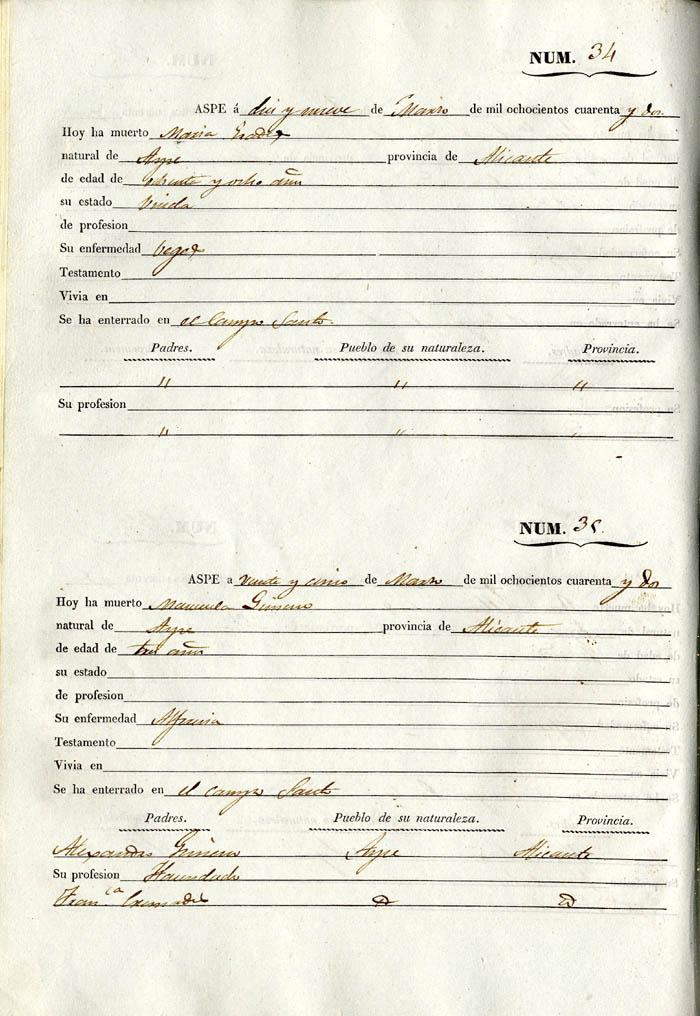 NUM. 34
ASPE á diez y nueve de Marzo de mil ochocientos cuarenta y dos.
Hoy ha muerto Maria
natural de Aspe provincia de Alicante
de edad de y ocho años
su estado Viuda
de profesion
Su enfermedad
Testamento
Vivia en
Se ha enterrado en el Campo Santo.
Padres. Pueblo de su naturaleza. Provincia.
" " "
Su profesion
" " "
NUM. 35.
ASPE a veinte y cinco de Marzo de mil ochocientos cuarenta y dos
Hoy ha muerto Manuela Gimeno
natural de Aspe provincia de Alicante
de edad de tres años
su estado
de profesion
Su enfermedad
Testamento
Vivia en
Se ha enterrado en el campo Santo
Padres. Pueblo de su naturaleza. Provincia.
Alexandro Gimeno Aspe Alicante
Su profesion Hacendado
Fran.ca